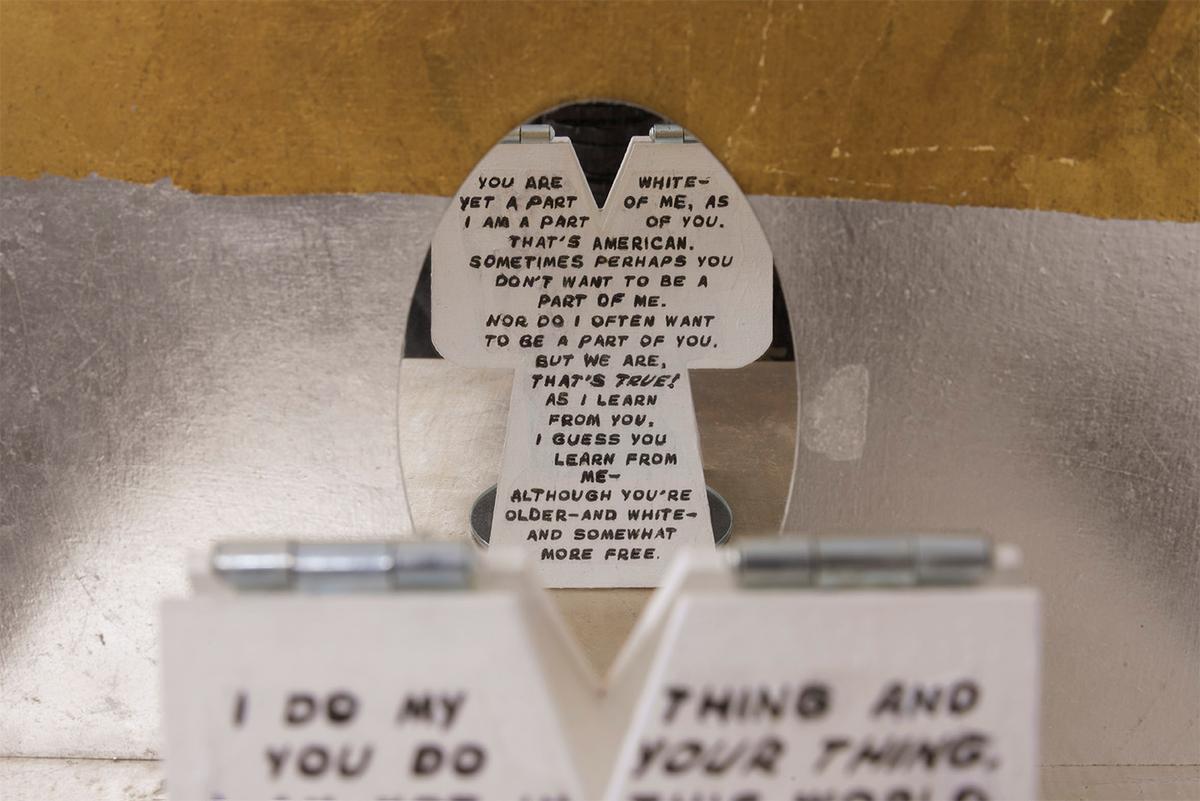 YOU ARE WHITE-
YET A PART OF ME, AS
I AM A PART OF YOU.
THAT'S AMERICAN.
SOMETIMES PERHAPS YOU
DON'T WANT TO BE A
PART OF ME.
NOR DO I OFTEN WANT
TO BE A PART OF YOU.
BUT WE ARE,
THAT'S TRUE!
AS I LEARN
FROM YOU,
I GUESS YOU
LEARN FROM
ME-
ALTHOUGH YOU'RE
OLDER-AND WHITE-
AND SOMEWHAT
MORE FREE.
I DO MY THING AND
YOU DO YOUR THING.
THIS WORLD